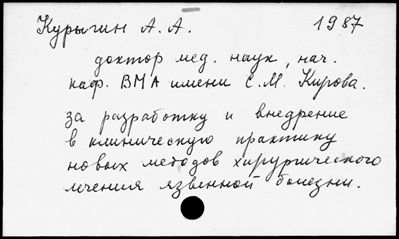 Курыгин А. А. 1987
доктор мед. наук, нач.
каф. ВМА имени С.М. Кирова.
за разработку и внедрение
в клиническую практику
новых методов хирургического
лечения язвенной болезни.